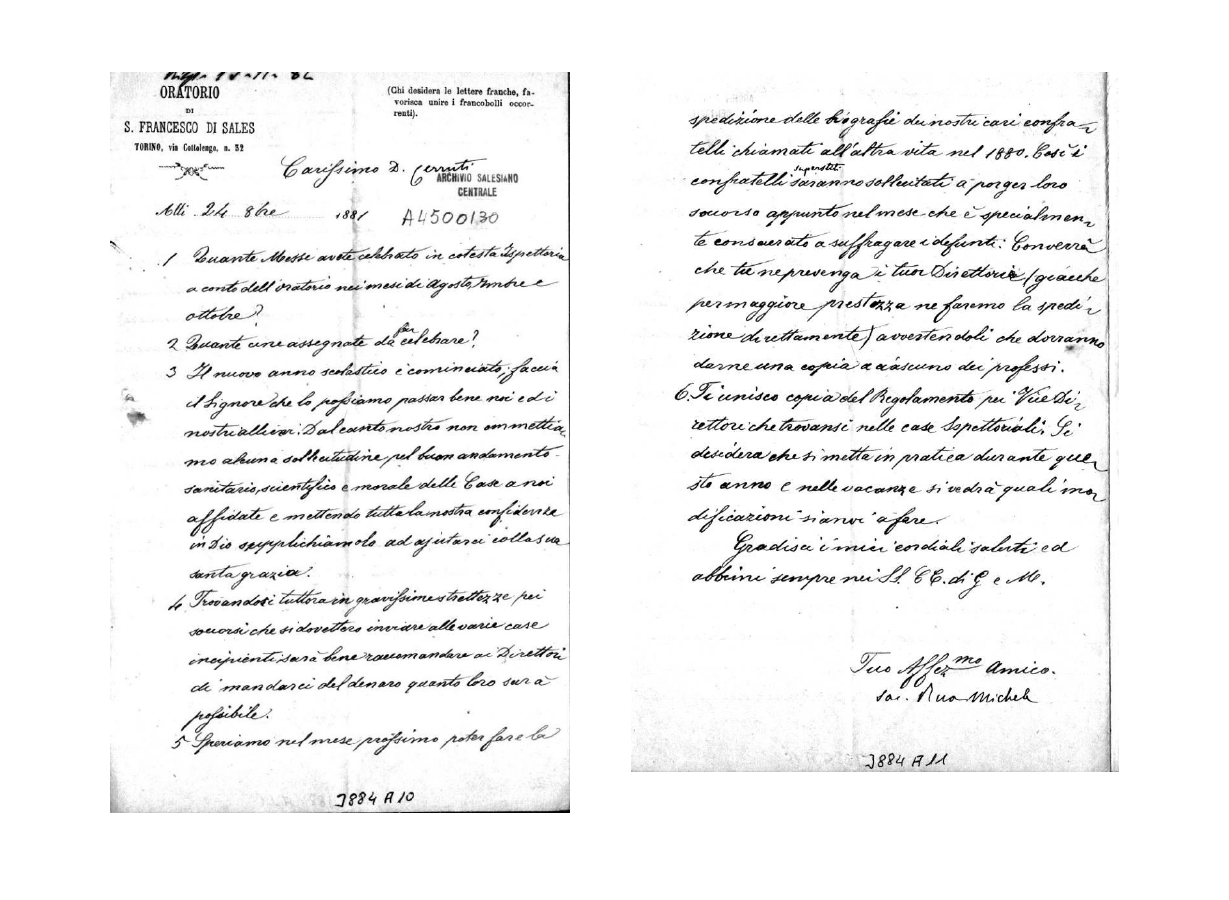 ORATORIO
DI
S. FRANCESCO DI SALES
TORINO, via Cottolengo, n. 32
(Chi desidera le lettere franche, fa-
vorisca unire i francobolli occor-
renti).
Carissimo D. Cerruti
ARCHIVIO SALESIANO
CENTRALE
Alli 24 8bre 1881
A4500130
1 Quante Messe avete celebrato in cotesta Ispettoria
a conto dell'Oratorio nei mesi di Agosto, 7mbre e
ottobre?
2 Quante ne assegnate da far celebrare?
3 Il nuovo anno scolastico è cominciato, faccia
il Signore che lo possiamo passar bene noi ed i
nostri allievi. Dal canto nostro non ommettia-
mo alcuna sollecitudine pel buon andamento
sanitario, scientifico e morale delle Case a noi
affidate e mettendo tutta la nostra confidenza
in Dio supplichiamolo ad ajutarci colla sua
santa grazia.
4 Trovandosi tuttora in gravissime strettezze pei
soccorsi che si dovettero inviare alle varie case
incipienti, sarà bene raccomandare ai Direttori
di mandarci del denaro quanto loro sarà
possibile.
5 Speriamo nel mese prossimo poter fare la
J884 A10
spedizione delle biografie dei nostri cari confra-
telli chiamati all'altra vita nel 1880. Così i
confratelli superstiti saranno sollecitati a porger loro
soccorso appunto nel mese che è specialmen-
te consacrato a suffragare i defunti: Converrà
che tu ne prevenga i tuoi Direttori (giacche
per maggiore prestezza ne faremo la spedi-
zione direttamente) avvertendoli che dovranno
darne una copia a ciascuno dei professi.
6. Ti unisco copia del Regolamento pei Vice Di-
rettori che trovansi nelle case Ispettoriali. Si
desidera che si metta in pratica durante que-
sto anno e nelle vacanze si vedrà quali mo-
dificazioni sianvi a fare.
Gradisci i miei cordiali saluti ed
abbimi sempre nei SS. CC. di G e M.
Tuo Affezmo Amico.
Sac. Rua Michele
J884 A11